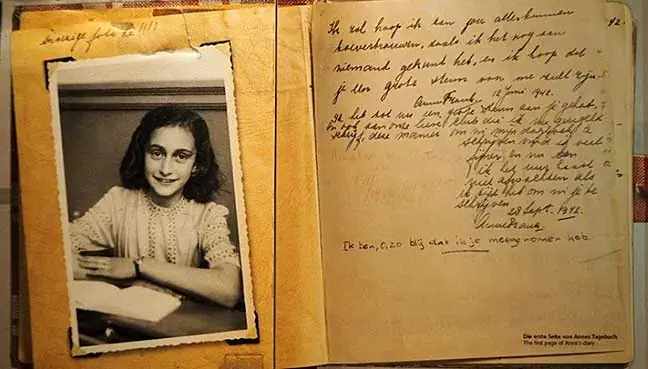 snoezige foto hè !!!!
Ik zal hoop ik aan jou alles kunnen
toevertrouwen, zoals ik het nog aan
niemand gekund heb, en ik hoop dat
je een grote steun voor me zult zijn.
Anne Frank. 12 Juni 1942.
Ik heb tot nu een grote steun aan je gehad,
en ook aan onze lieve club die ik nu geregeld
schrijf, deze manier om in mijn dagboek te
schrijven vind ik veel
fijner en nu kan
ik het uur haast
niet afwachten als
ik tijd heb om in je te
schrijven.
28 Sept. 1942.
Anne Frank.
Ik ben, o, zo blij dat ik je meegenomen heb.
Die erste Seite von Annes Tagebuch
The first page of Anne's diary